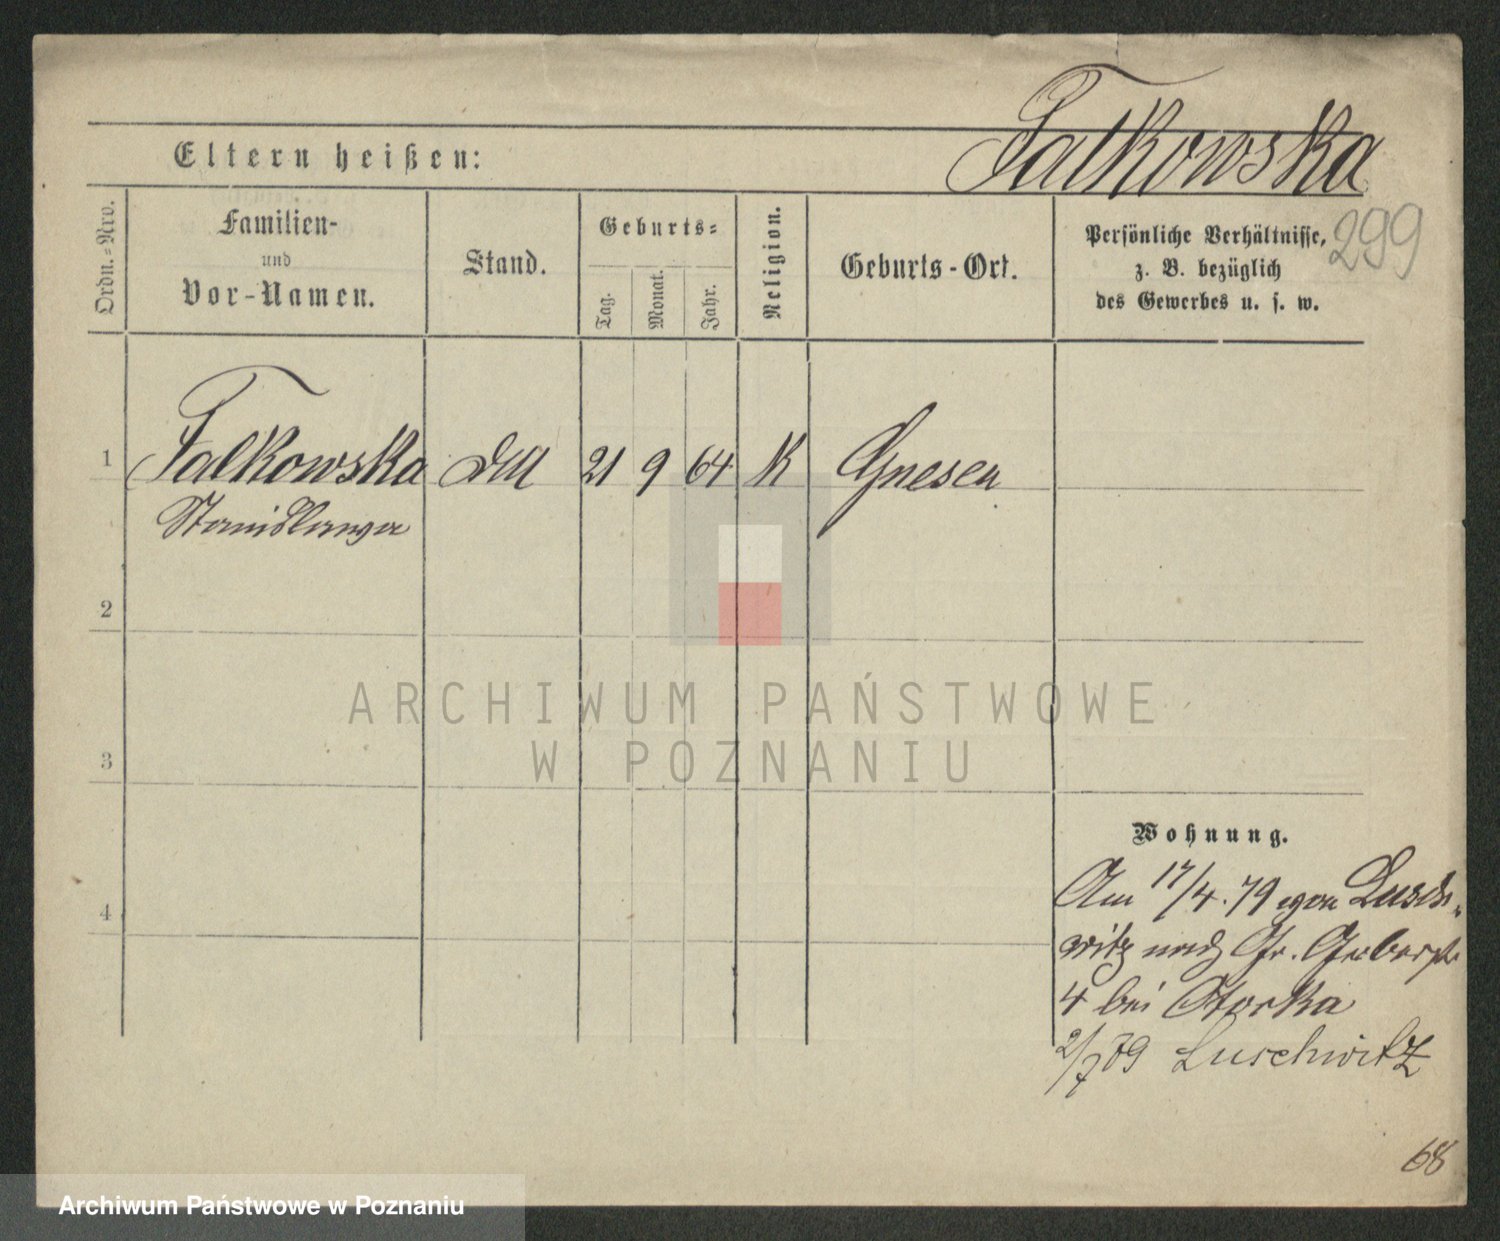 Falkowska
Eltern heißen:
299
Ordn.=Nro.
Familien-
und
Vor-Namen.
Stand.
Geburts=
Tag.
Monat.
Jahr.
Religion.
Geburts-Ort.
Persönliche Verhältnisse,
z. B. bezüglich
des Gewerbes u. s. w.
1 Falkowska 21 9 64 K Gnesen
Stanislawa
2
3
4
ARCHIWUM PAŃSTWOWE
W POZNANIU
Wohnung.
Am 17/4. 79 von Lusch-
witz nach Gr. Gerberstr
4 bei Storka
2/7 79 Luschwitz
68
Archiwum Państwowe w Poznaniu